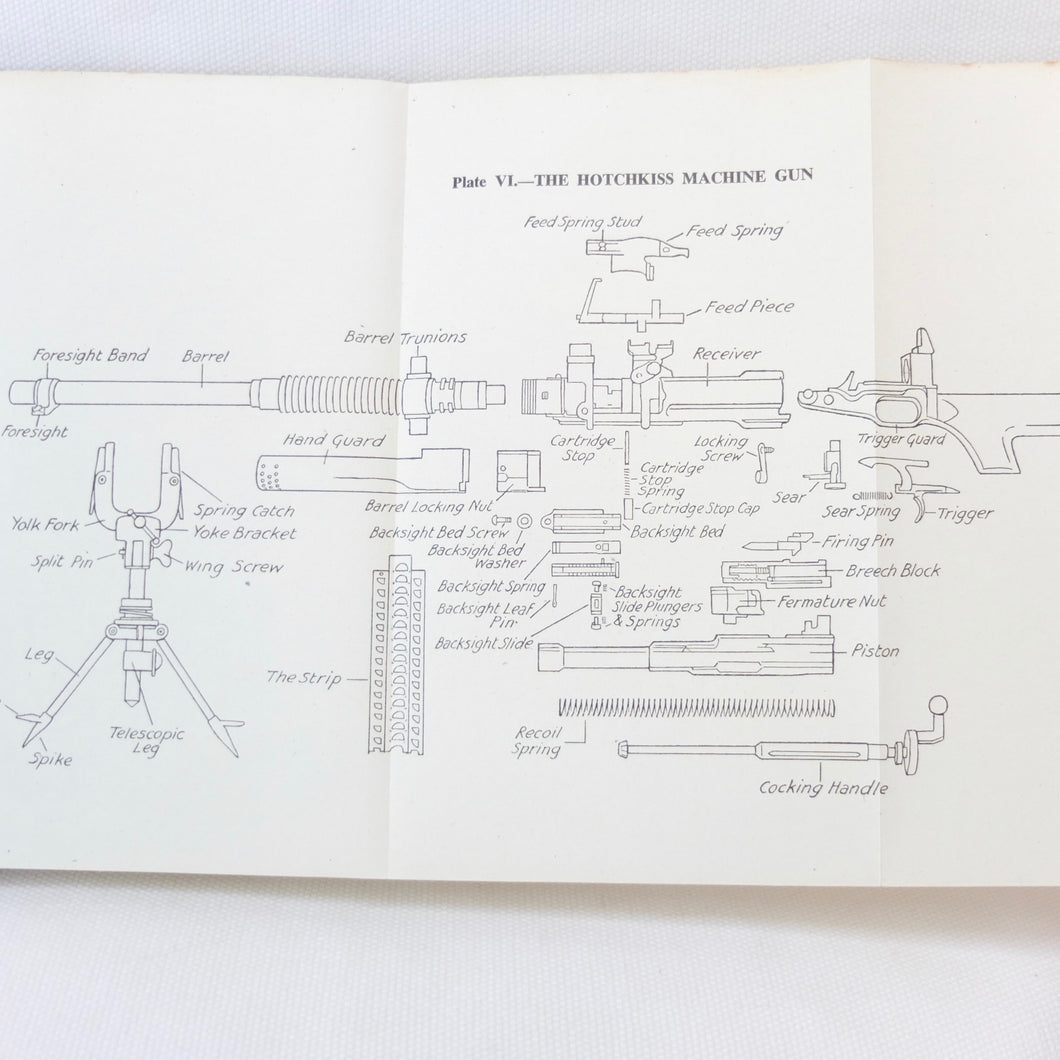 Plate VI.—THE HOTCHKISS MACHINE GUN
Feed Spring Stud
Feed Spring
Feed Piece
Barrel Trunions
Foresight Band
Barrel
Receiver
Foresight
Hand Guard
Cartridge
Stop
Locking
Screw
Trigger Guard
Cartridge
Stop
Spring
Sear
Spring Catch
Barrel Locking Nut
Cartridge Stop Cap
Sear Spring
Trigger
Yolk Fork
Yoke Bracket
Backsight Bed Screw
Backsight Bed
Backsight Bed
Washer
Firing Pin
Split Pin
Wing Screw
Breech Block
Backsight Spring
Backsight
Slide Plungers
& Springs
Fermature Nut
Backsight Leaf
Pin
Backsight Slide
Piston
Leg
The Strip
Telescopic
Leg
Recoil
Spring
Spike
Cocking Handle